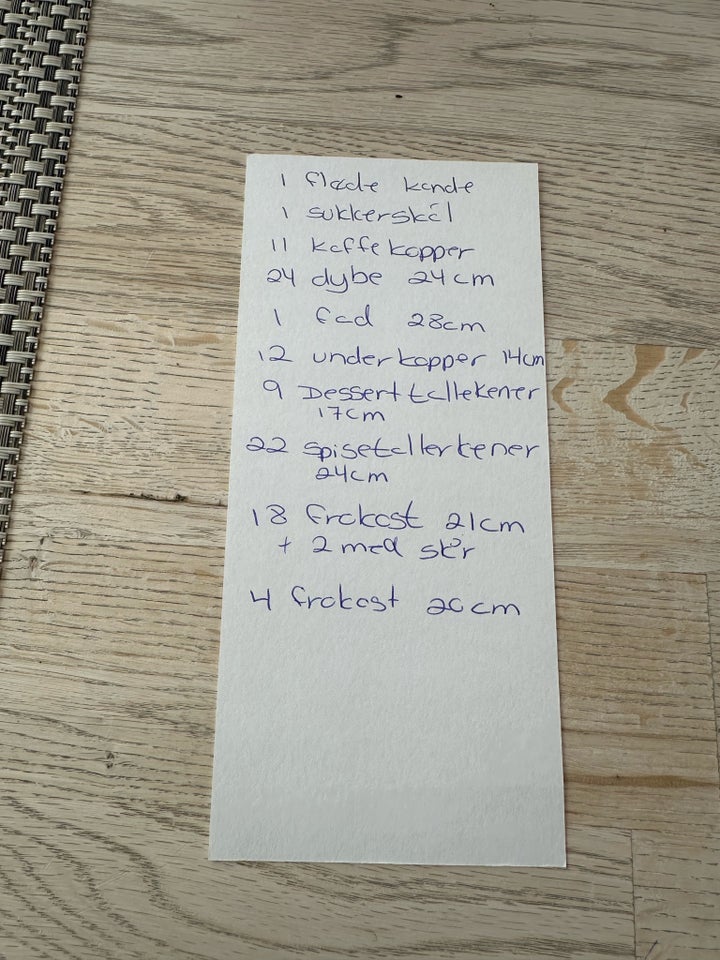 1 fløde kande
1 sukkerskål
11 kaffe kopper
24 dybe 24cm
1 fad 28cm
12 underkopper 14cm
9 Desserttallekener
17cm
22 spisetallerkener
24cm
18 frokost 21cm
+ 2 med skår
4 frokost 20cm